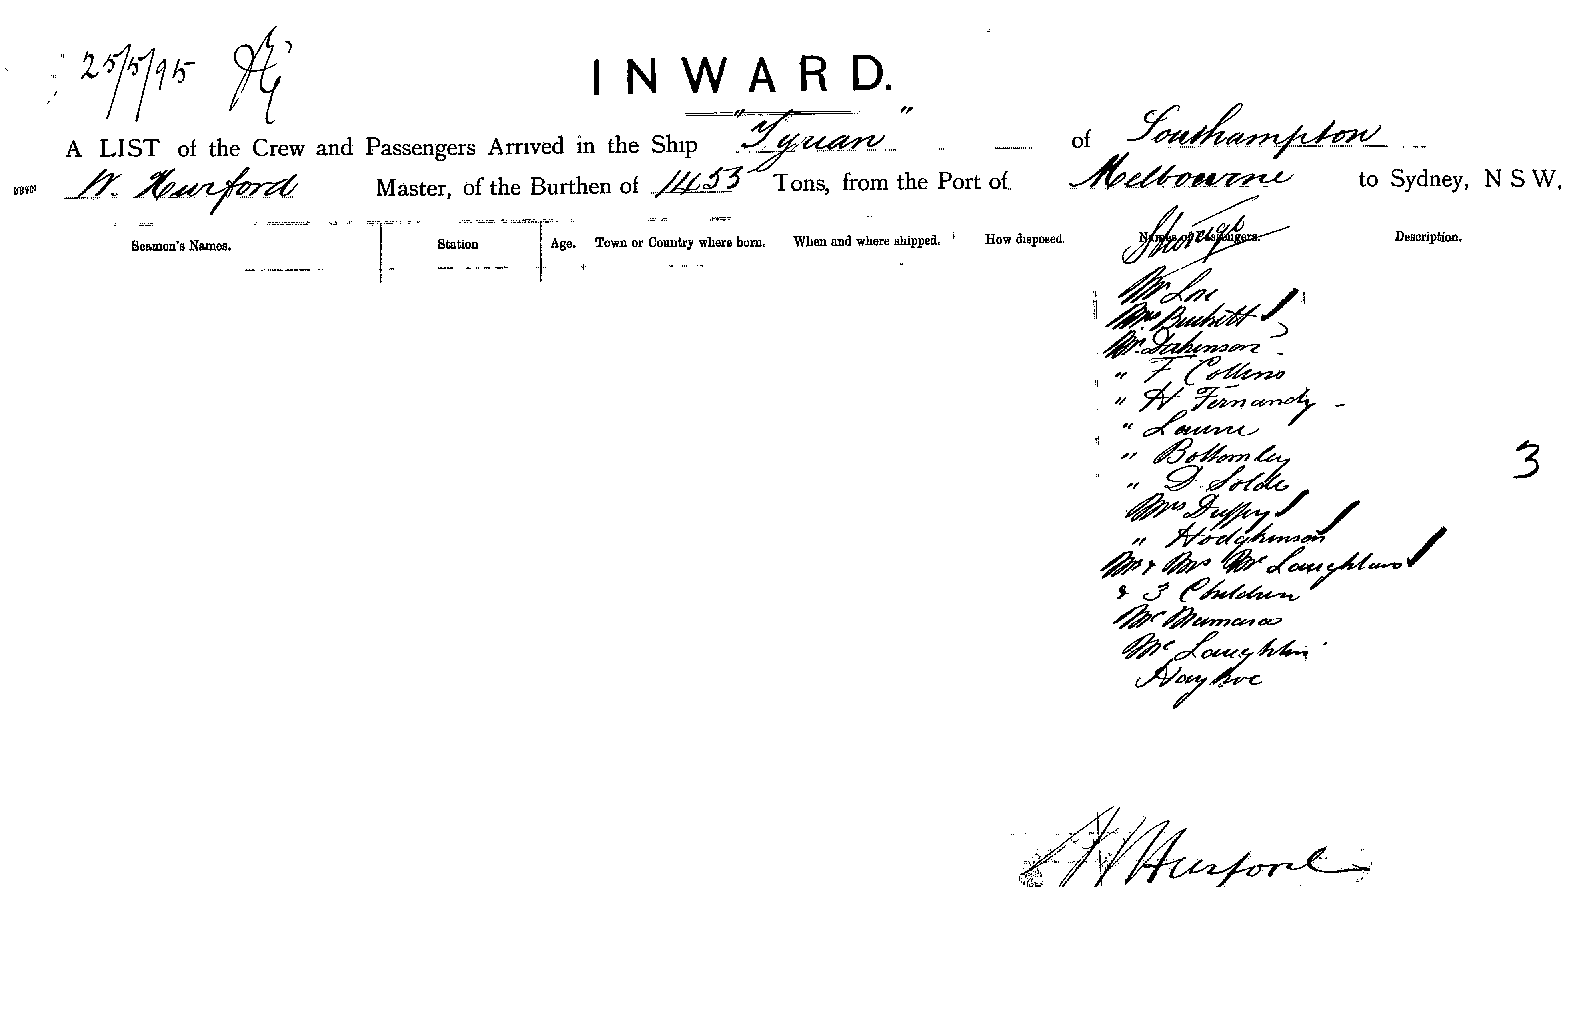 25/5/95
INWARD.
A LIST of the Crew and Passengers Arrived in the Ship "Tyrian" of Southampton
W. Hurford Master, of the Burthen of 1453 Tons, from the Port of Melbourne to Sydney, N S W,
Seamen's Names. Station Age. Town or Country where born. When and where shipped. How disposed. Names of Passengers. Description.
Mr
Mrs Burkitt
Mr. Dakinson
" F Collins
" H Fernandy
" Laurie
" Bottomley
" D.
Mrs Duffy
" Hodgkinson
Mr & Mrs Mc Laughlan
& 3 Children
Mc Namara
Mc Laughlin
3
W Hurford